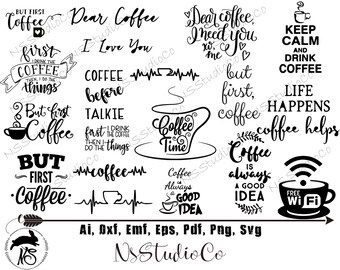 BUT FIRST
Coffee
Dear Coffee
I Love You
Dear coffee,
I need you
xo,
me
KEEP
CALM
AND
DRINK
COFFEE
first
I DRINK THE
COFFEE
THEN I DO THE
things
COFFEE
before
TALKIE
but
first,
coffee
LIFE
HAPPENS
coffee helps
But first
Coffee
first I DRINK
THE COFFEE
THEN I DO THE
things
Coffee
Time
BUT
FIRST
Coffee
coffee
Coffee
is Always
a GOOD
IDEA
Coffee
is
always
A GOOD
IDEA
FREE
WiFi
NsStudioCo
Ai, Dxf, Emf, Eps, Pdf, Png, Svg
NS
NsStudioCo